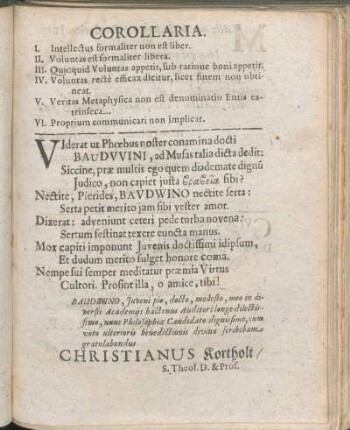 COROLLARIA.
I. Intellectus formaliter non est liber.
II. Voluntas est formaliter libera.
III. Quicquid Voluntas appetit, sub ratione boni appetit.
IV. Voluntas rectè efficax dicitur, licet finem non obti-
neat.
V. Veritas Metaphysica non est denominatio Entis ex-
trinseca.
VI. Proprium communicari non implicat.
VIderat ut Phœbus noster conamina docti
BAUDVVINI, ad Musas talia dicta dedit:
Siccine, præ multis ego quem diademate dignũ
Judico, non capiet justa βραβεῖα sibi?
Nectite, Pierides, BAVDWINO nectite serta:
Serta petit merito jam sibi vester amor.
Dixerat: adveniunt celeri pede turba novena:
Sertum festinat texere cuncta manus.
Mox capiti imponunt Juvenis doctissimi idipsum,
Et dudum merito fulget honore coma.
Nempe sui semper meditatur præmia Virtus
Cultori. Prosint illa, o amice, tibi!
BAUDWINO, Juveni pio, docto, modesto, meo in di-
versis Academijs hactenus Auditori longe dilectis-
simo, nunc Philosophiæ Candidato dignissimo, cum
voto ulterioris benedictionis divinæ scribebam
gratulabundus
CHRISTIANUS Kortholt/
S. Theol. D. & Prof.